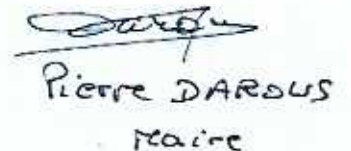 Pierre DAROUS
Maire